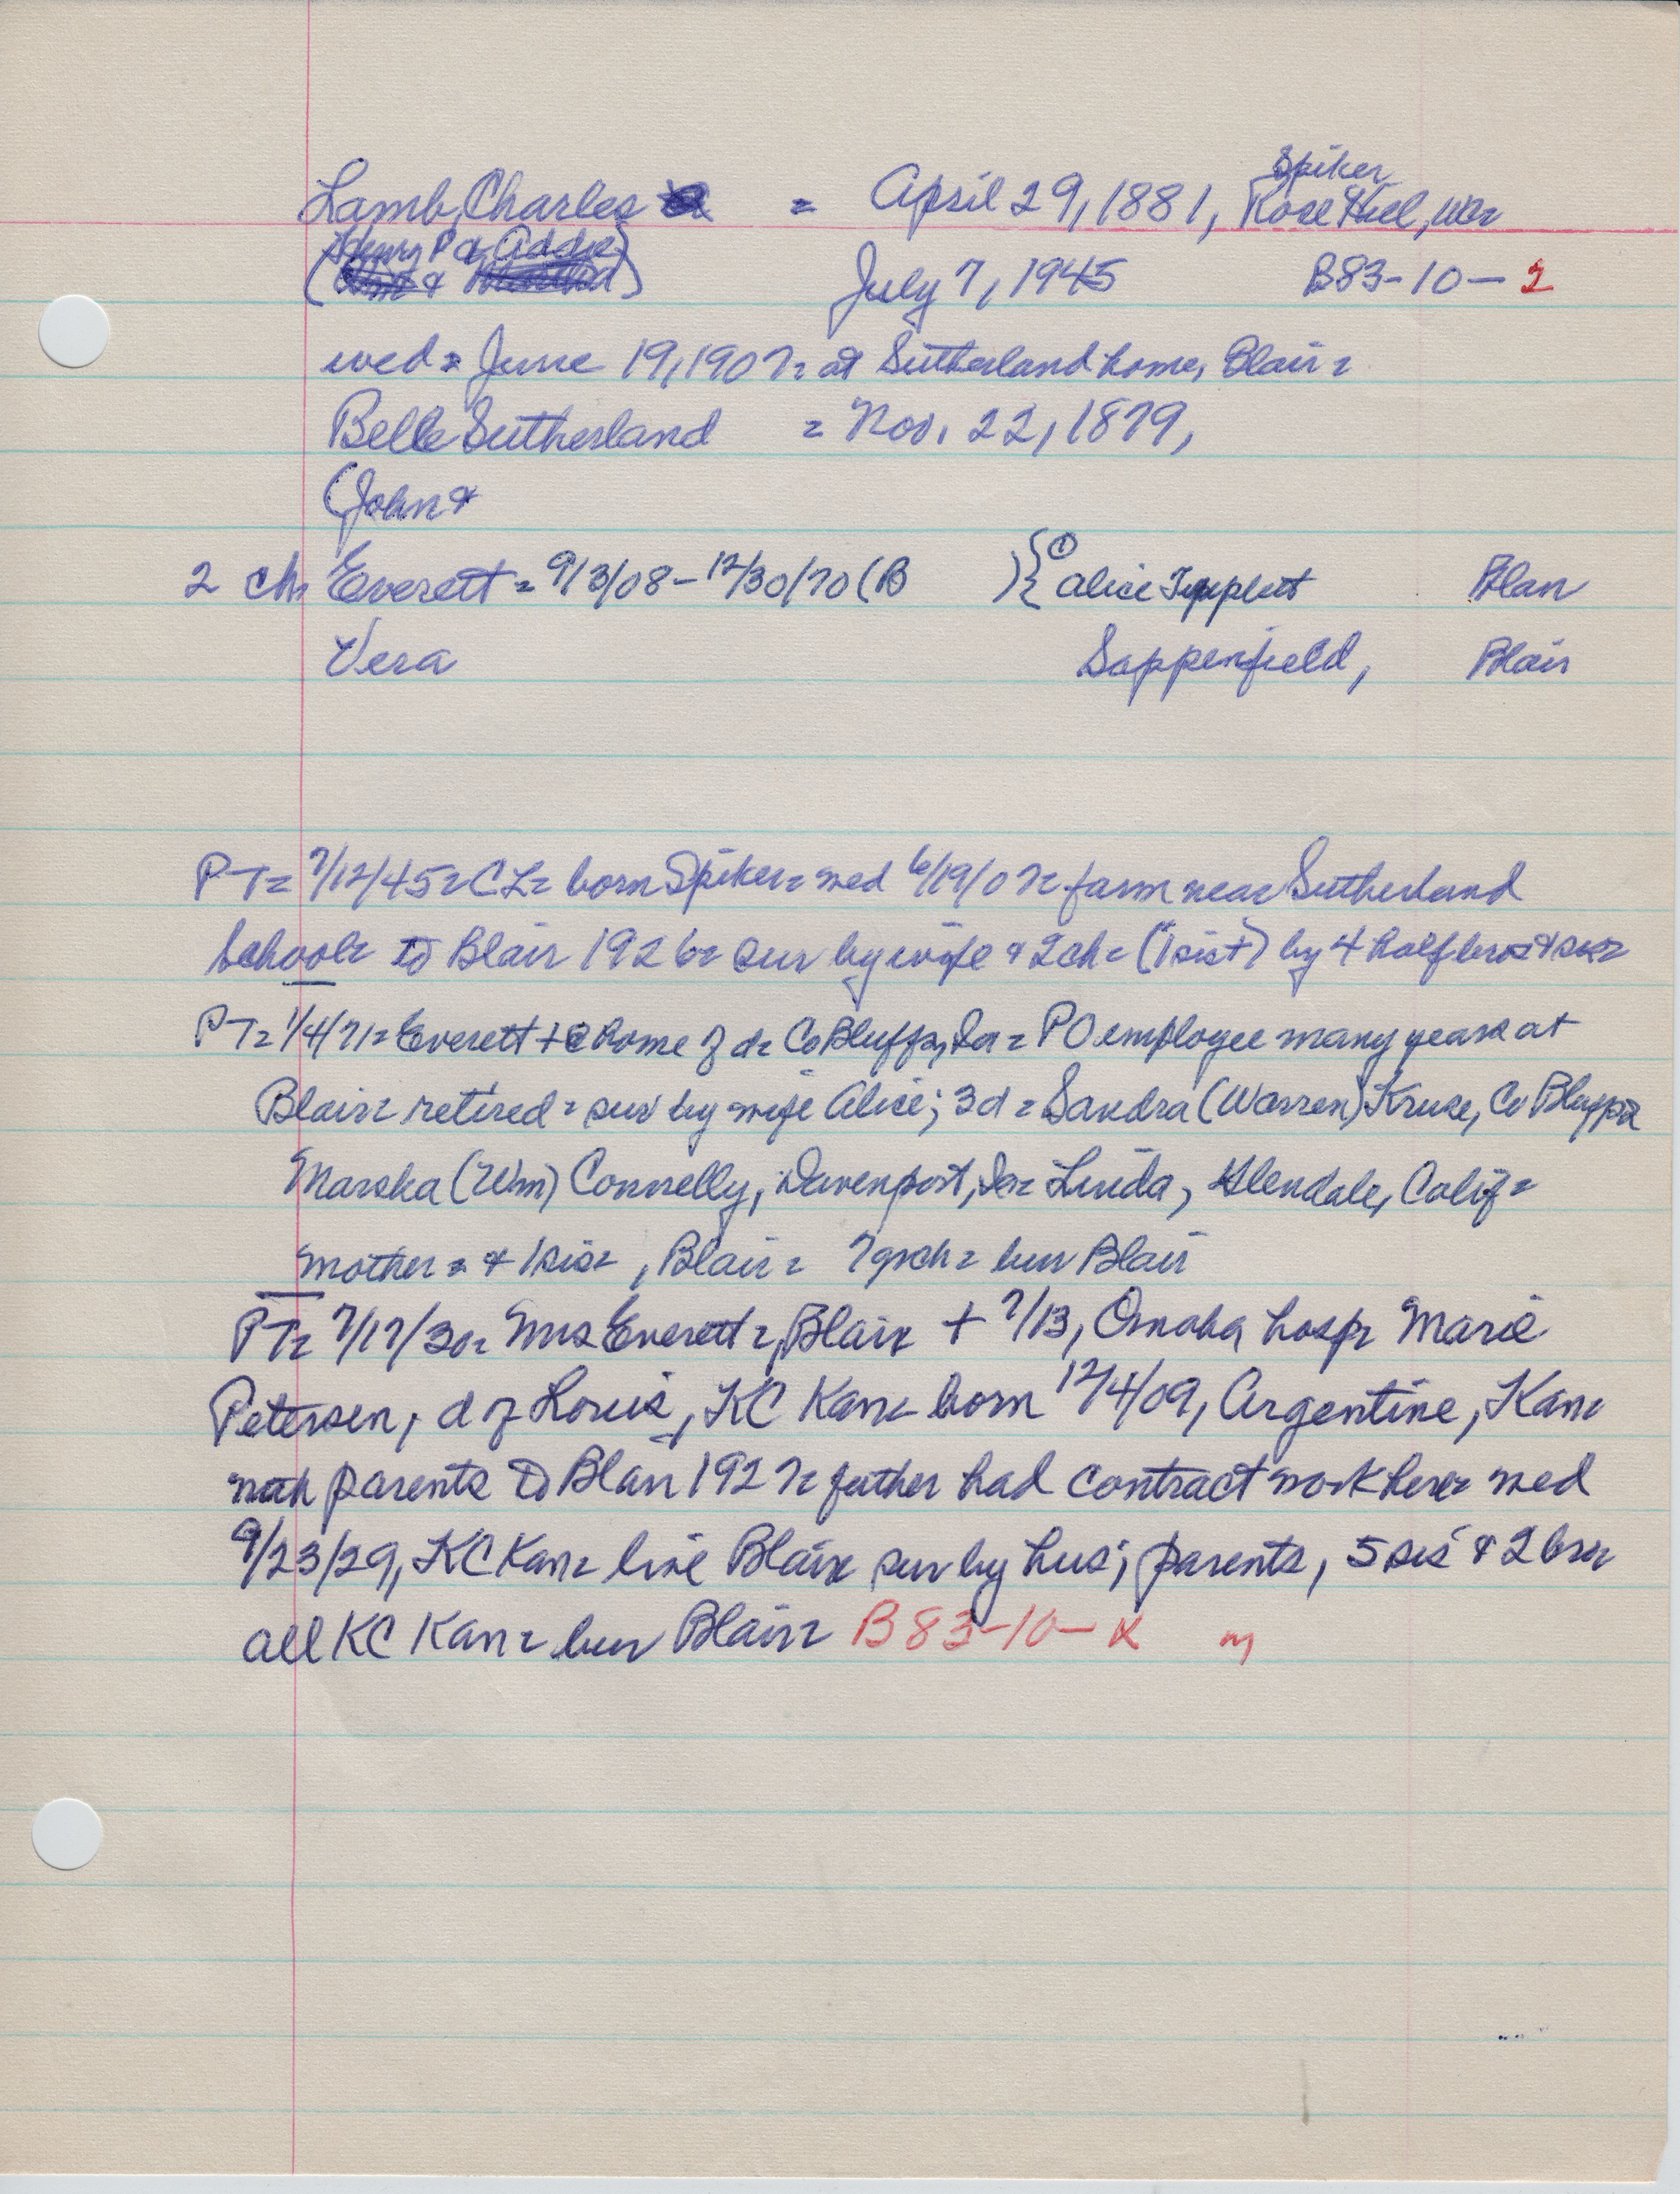 Spiker
Lamb, Charles = April 29, 1881, Rose Hill, Wn=
(Henry P & Addie) July 7, 1945 B83-10-2
wed = June 19, 1907= at Sutherland home, Blair=
Belle Sutherland = Nov. 22, 1879,
(John &
2 ch= Everett = 9/3/08 - 12/30/70 (B ) { ① Alice Blair
Vera Sappenfield, Blair
PT= 7/12/45= CL= born Spiker= wed 6/19/07= farm near Sutherland
School= to Blair 1926= sur by wife & 2 ch= (1 sis +) by 4 half bros & sis=
PT= 1/4/71= Everett + @ home of d= Co Bluffs, Ia = PO employee many years at
Blair= retired = sur by wife Alice; 3d = Sandra (Warren) Kruse, Co Bluffs=
Marska (Wm) Connelly, Davenport, Ia= Linda, Glendale, Calif=
mother = & 1 sis= , Blair= 7 gch = bur Blair
PT= 7/17/30= Mrs Everett=, Blair + 7/13, Omaha hosp= Marie
Petersen, d of Louis, KC Kan= born 12/4/09, Argentine, Kan=
with parents to Blair 1927= father had contract work here= wed
9/23/29, KC Kan= live Blair= sur by hus; parents, 5 sis & 2 bro=
all KC Kan= bur Blair= B83-10-x m